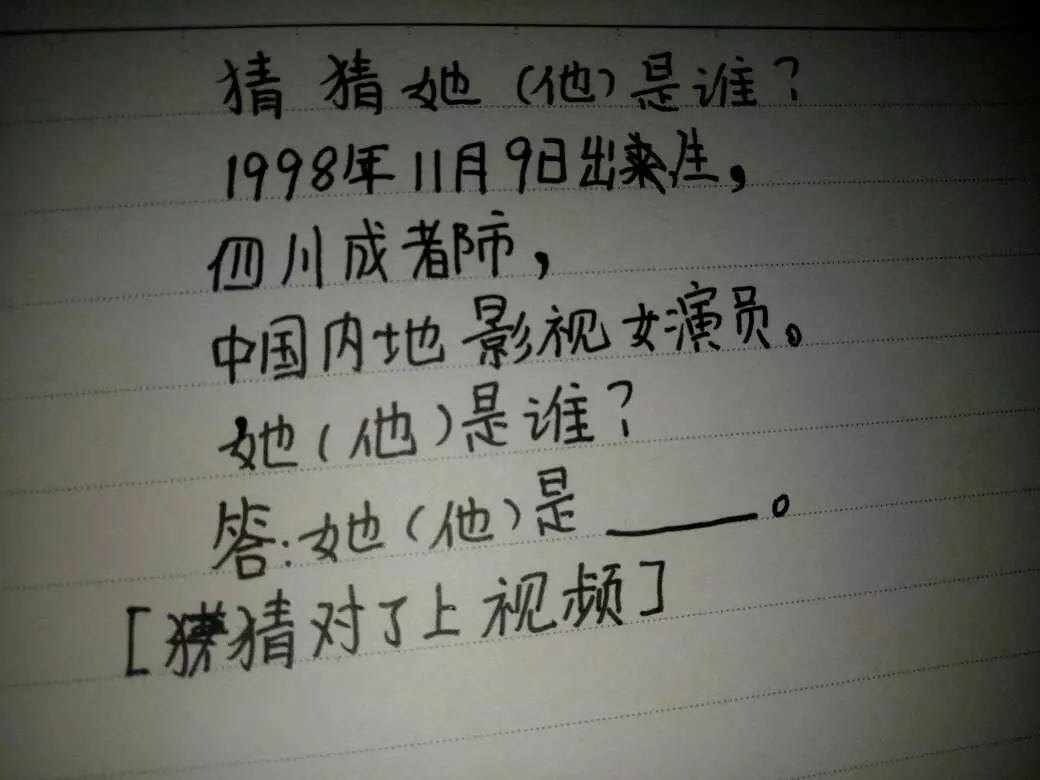 猜猜她(他)是谁?
1998年11月9日出生,
四川成都市,
中国内地影视女演员。
她(他)是谁?
答:她(他)是______。
[猜对了上视频]